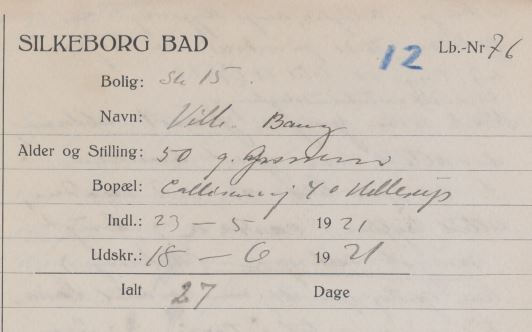 SILKEBORG BAD 12 Lb.-Nr 76
Bolig: St 15.
Navn: Vilh. Bang
Alder og Stilling: 50 g.
Bopæl: Callisensvej 40 Hellerup
Indl.: 23 – 5 19 21
Udskr.: 18 – 6 19 21
Ialt 27 Dage